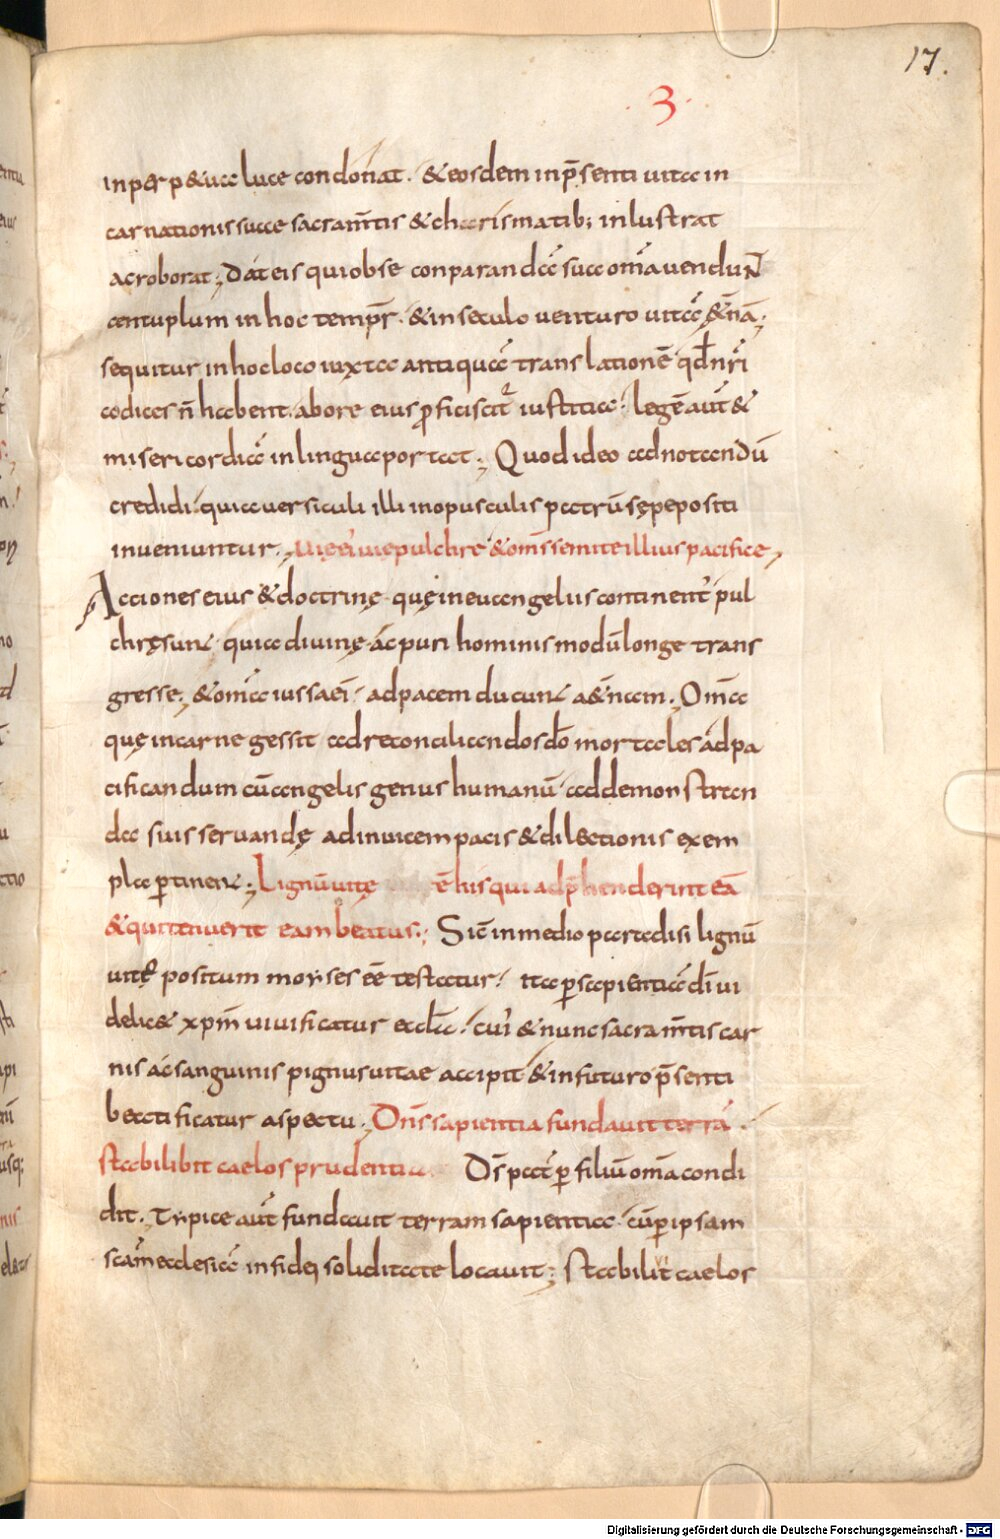 17.
3
inp&rp&ua luce condonat. &eosdem inp̄senti uita in
carnationis suae sacram̄tis & charismatib; inlustrat
acroborat; Dat eis qui obse conparandā sua om̄a uendūt
centuplum in hoc temp̄r. & in seculo uenturo uitā &̄nā;
sequitur in hoc loco iuxta antiquā translationē qđ nr̄i
codices n̄ habent. abore eius ꝓficiscit᷑ iustitia. legē aut̄ &
misericordiā in lingua portat; Quod ideo adnotandū
credidi. quia uersiculi illi inopusculis patrū sępe positi
inueniuntur; Uię ei᷑ uię pulchre &om̄s semite illius pacifice,
Acciones eius & doctrinę quę in euangeliis continent᷑ pul
chrę sunt quia diuinę ac puri hominis modū longe trans
gresse; & om̄ia iussa ei᷑ ad pacem ducunt a&̄nam; Om̄a
quę in carne gessit ad reconciliandos dō mortales ad pa
cificandum cū angelis genus humanū ad demonstran
da suis seruandę adinuicem pacis & dil&ctionis exem
pla ꝑtinent; Lignū uitę ē his qui adp̄henderint eā
& qui tenuerit eam beatus; Sic̄ in medio paradisi lignū
uitę positum moyses ēē testatur. ita ꝑ sapientiā dī ui
delic& xpm̄ uiuificatur eccla. cui᷑ & nunc sacram̄tis car
nis ac sanguinis pignus uitae accipit & in futuro p̄senti
beatificatur aspectu; Dn̄s sapientia fundauit terrā.
stabilibit caelos prudentia Ds̄ pat̄ ꝑ filiū om̄a condi
dit. Typice aut̄ fundauit terram sapientia. cū ꝑ ipsam
scam̄ ecclesiā in fidei soliditate locauit; Stabilit caelos
Digitalisierung gefördert durch die Deutsche Forschungsgemeinschaft - DFG